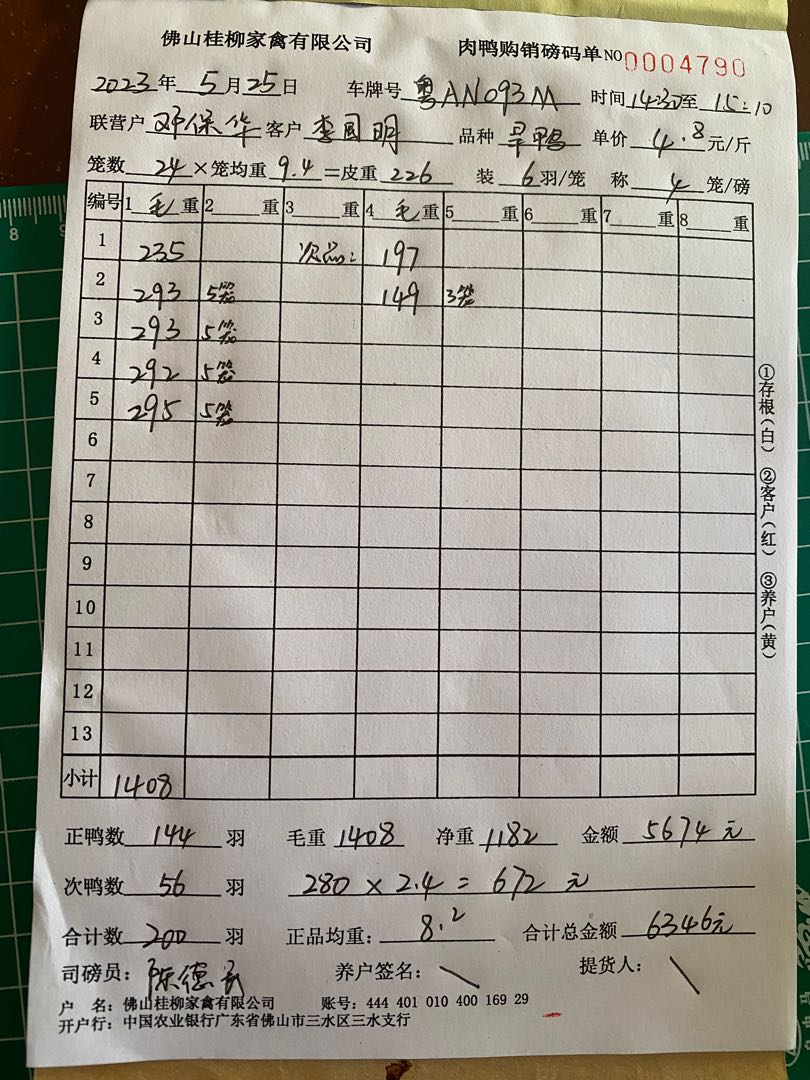 佛山桂柳家禽有限公司 肉鸭购销磅码单 NO 0004790
2023年 5月25日 车牌号 粤AN093M 时间 14:30至 15:10
联营户 邓保华 客户 李国明 品种 旱鸭 单价 4.8 元/斤
笼数 24 ×笼均重 9.4 =皮重 226 装 6 羽/笼 称 4 笼/磅
编号 1 毛 重 2 重 3 重 4 毛 重 5 重 6 重 7 重 8 重
1 235 次品: 197
2 293 5笼 149 3笼
3 293 5笼
4 292 5笼
5 295 5笼
6
7
8
9
10
11
12
13
小计 1408
正鸭数 144 羽 毛重 1408 净重 1182 金额 5674元
次鸭数 56 羽 280 × 2.4 = 672 元
合计数 200 羽 正品均重: 8.2 合计总金额 6346元
司磅员: 陈德 养户签名: 提货人:
户 名: 佛山桂柳家禽有限公司 账号: 444 401 010 400 169 29
开户行: 中国农业银行广东省佛山市三水区三水支行
①存根(白) ②客户(红) ③养户(黄)
8
9